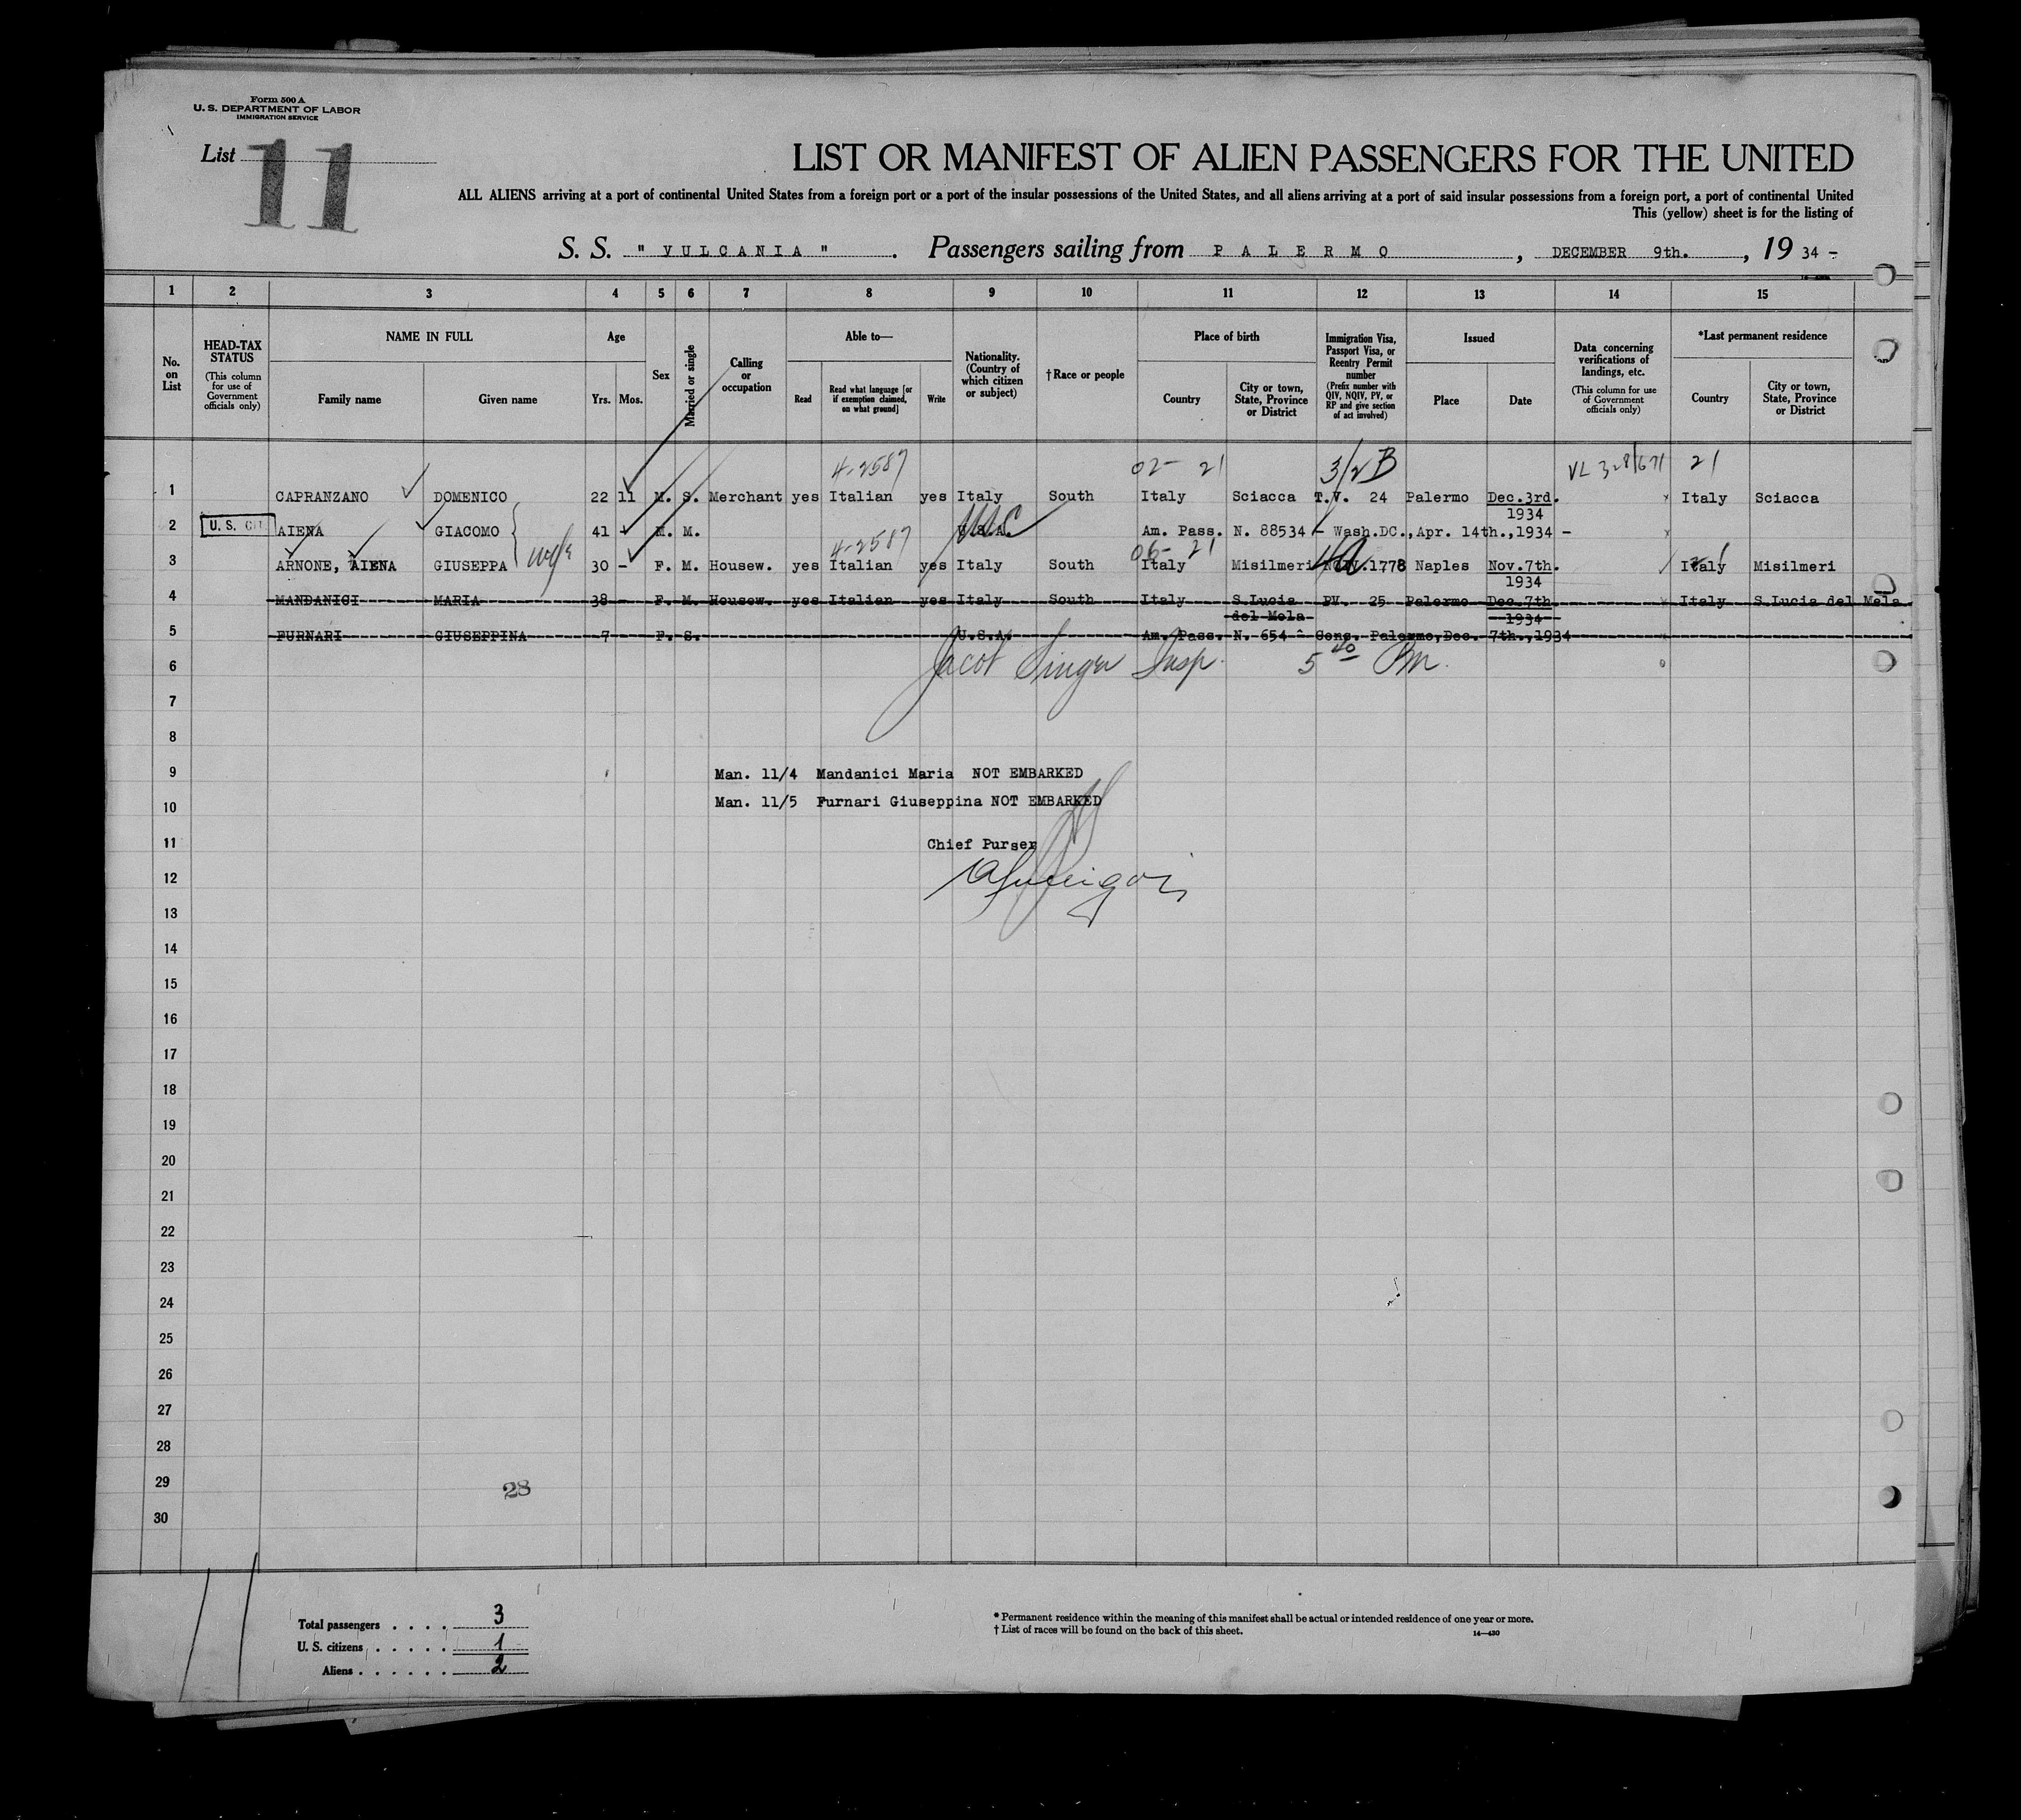 Form 500 A
U. S. DEPARTMENT OF LABOR
IMMIGRATION SERVICE
List 11
LIST OR MANIFEST OF ALIEN PASSENGERS FOR THE UNITED
ALL ALIENS arriving at a port of continental United States from a foreign port or a port of the insular possessions of the United States, and all aliens arriving at a port of said insular possessions from a foreign port, a port of continental United
This (yellow) sheet is for the listing of
S. S. " VULCANIA " . Passengers sailing from PALERMO , DECEMBER 9th. , 19 34 -
1 2 3 4 5 6 7 8 9 10 11 12 13 14 15
No. on List
HEAD-TAX STATUS (This column for use of Government officials only)
NAME IN FULL
Family name Given name
Age
Yrs. Mos.
Sex
Married or single
Calling or occupation
Able to—
Read Read what language [or if exemption claimed, on what ground] Write
Nationality. (Country of which citizen or subject)
†Race or people
Place of birth
Country City or town, State, Province or District
Immigration Visa, Passport Visa, or Reentry Permit number (Prefix number with QIV, NQIV, PV, or RP and give section of act involved)
Issued
Place Date
Data concerning verifications of landings, etc. (This column for use of Government officials only)
*Last permanent residence
Country City or town, State, Province or District
4-2587 02- 21 3/2 B 21
1 CAPRANZANO DOMENICO 22 11 M. S. Merchant yes Italian yes Italy South Italy Sciacca T.V. 24 Palermo Dec.3rd. Italy Sciacca
1934
2 U. S. CIT. AIENA GIACOMO 41 - M. M. U.S.A. Am. Pass. N. 88534 - Wash.DC.,Apr. 14th.,1934 -
4-2587 06- 21
3 ARNONE, AIENA GIUSEPPA wife 30 - F. M. Housew. yes Italian yes Italy South Italy Misilmeri 4a 1778 Naples Nov.7th. Italy Misilmeri
1934
4 MANDANICI MARIA 38 - F. M. Housew. yes Italian yes Italy South Italy S.Lucia PV. 25 Palermo Dec.7th Italy S.Lucia del Mela
del Mela 1934
5 FURNARI GIUSEPPINA 7 F. S. U.S.A. Am. Pass. N. 654 - Cons. Palermo,Dec. 7th.,1934
6 Jacob Singer Insp. 5 40 Pm.
7
8
9 Man. 11/4 Mandanici Maria NOT EMBARKED
10 Man. 11/5 Furnari Giuseppina NOT EMBARKED
11 Chief Purser
12
13
14
15
16
17
18
19
20
21
22
23
24
25
26
27
28
29 28
30
Total passengers . . . . 3
U. S. citizens . . . . . 1
Aliens . . . . . . 2
* Permanent residence within the meaning of this manifest shall be actual or intended residence of one year or more.
† List of races will be found on the back of this sheet.
14—430